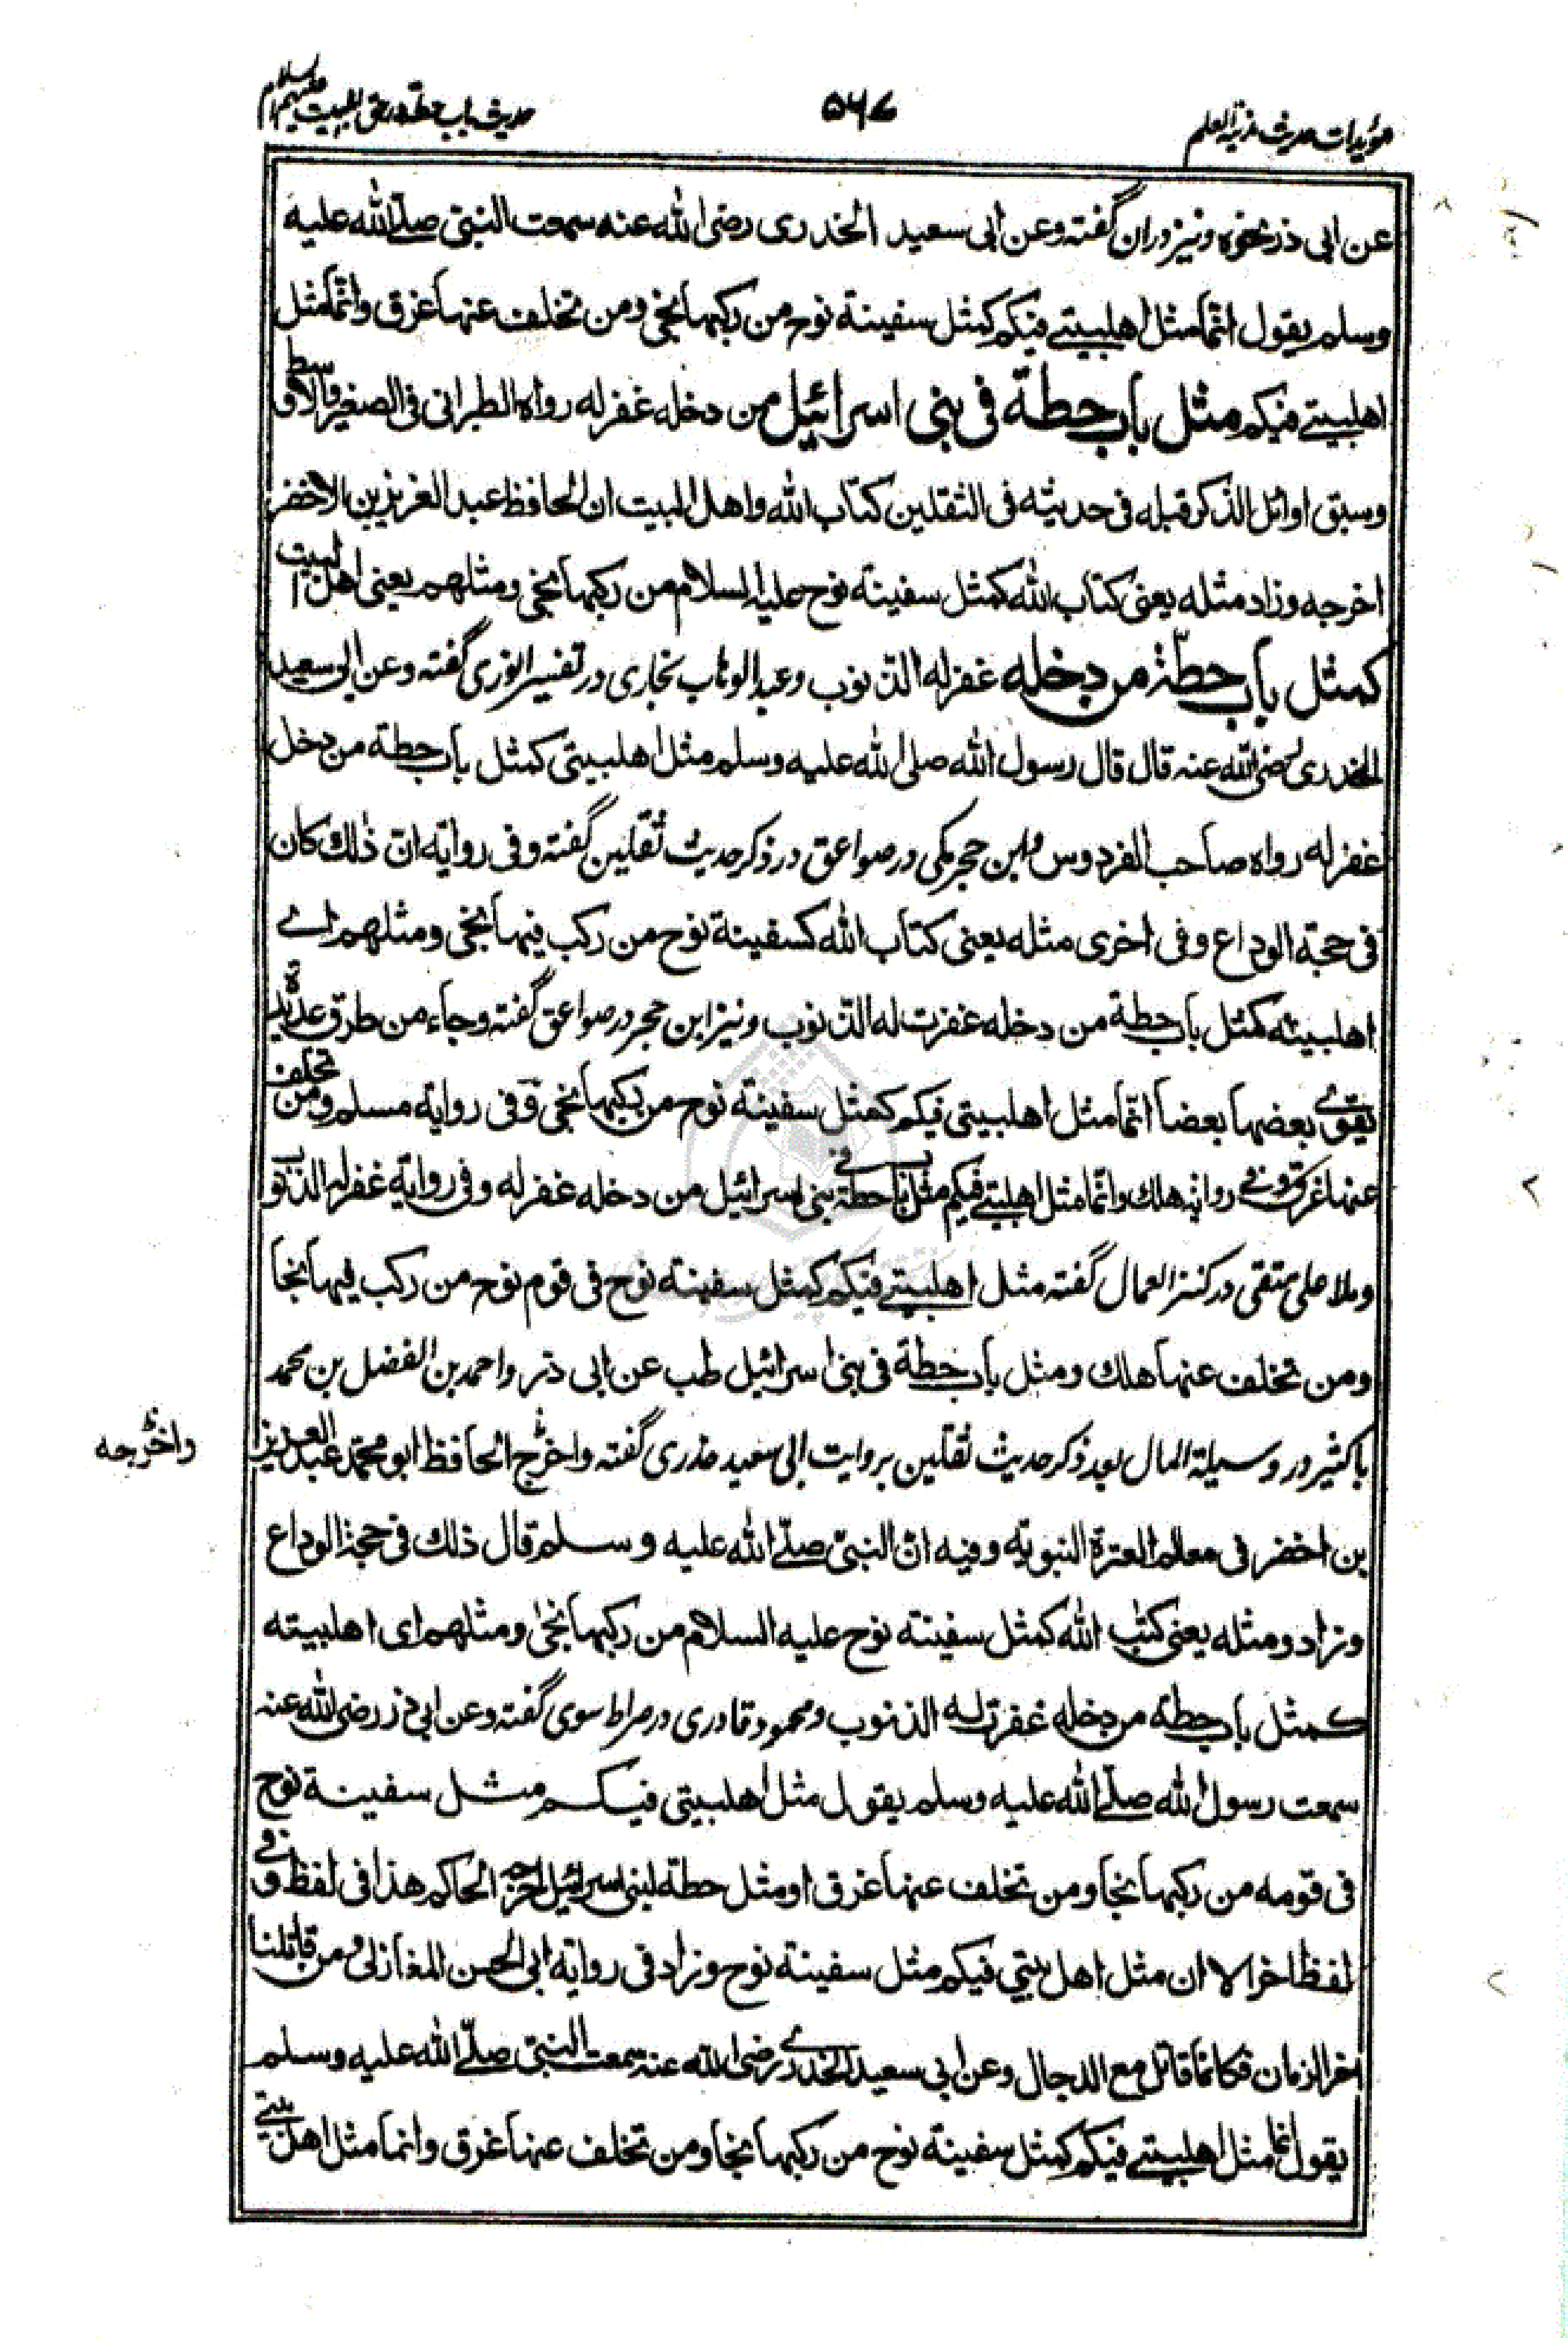 مؤیدات حدیث مدینة العلم
۵۶۷
حدیث باب حطه در حق اهلبیت علیهم السلام
عن ابی ذر نحوه ونیز دران گفته وعن ابی سعید الخدری رضی الله عنه سمعت النبی صلی الله علیه
وسلم یقول انما مثل اهلبیتی فیکم کمثل سفینة نوح من رکبها نجی ومن تخلف عنها غرق وانما مثل
اهلبیتی فیکم مثل باب حطة فی بنی اسرائیل من دخله غفر له رواه الطبرانی فی الصغیر والاوسط
وسبق اوائل الذکر قبله فی حدیثه فی الثقلین کتاب الله واهل البیت ان الحافظ عبد العزیز بن الاخضر
اخرجه وزاد مثله یعنی کتاب الله کمثل سفینة نوح علیه السلام من رکبها نجی ومثلهم یعنی اهل البیت
کمثل باب حطّة من دخله غفر له الذنوب وعبد الوهاب بخاری در تفسیر انوری گفته وعن ابی سعید
الخدری رضی الله عنه قال قال رسول الله صلی الله علیه وسلم مثل اهلبیتی کمثل باب حطة من دخل
غفر له رواه صاحب الفردوس وابن حجر مکی در صواعق در ذکر حدیث ثقلین گفته وفی روایة انّ ذلك کان
فی حجة الوداع وفی اخری مثله یعنی کتاب الله کسفینة نوح من رکب فیها نجی ومثلهم اے
اهلبیته کمثل باب حطة من دخله غفرت له الذنوب ونیز ابن حجر در صواعق گفته وجاء من طرق عدیدة
یقوی بعضها بعضا انما مثل اهلبیتی فیکم کمثل سفینة نوح من رکبها نجی وفی روایة مسلم ومن تخلف
عنها غرق وفی روایة هلك وانما مثل اهلبیتی فیکم مثل باب حطة فی بنی اسرائیل من دخله غفر له وفی روایة غفر له الذنوب
وملا علی متقی در کنز العمال گفته مثل اهلبیتی فیکم کمثل سفینة نوح فی قوم نوح من رکب فیها نجا
ومن تخلف عنها هلك ومثل باب حطة فی بنی اسرائیل طب عن ابی ذر واحمد بن الفضل بن محمد
باکثیر در وسیلة المال بعد ذکر حدیث ثقلین بروایت ابی سعید خدری گفته واخرج الحافظ ابو محمد عبد العزیز
واخرجه
بن اخضر فی معالم العترة النبویة وفیه انّ النبی صلّی الله علیه وسلم قال ذلك فی حجة الوداع
وزاد ومثله یعنی کتٰب الله کمثل سفینة نوح علیه السلام من رکبها نجی ومثلهم ای اهلبیته
کمثل باب حطة من دخله غفرت له الذنوب ومحمود قادری در صراط سوی گفته وعن ابی ذر رضی الله عنه
سمعت رسول الله صلّی الله علیه وسلم یقول مثل اهلبیتی فیکم مثل سفینة نوح
فی قومه من رکبها نجا ومن تخلف عنها غرق او مثل حطة لبنی اسرائیل اخرجه الحاکم هذا فی لفظ وفی
لفظ اخر الا ان مثل اهل بیتی فیکم مثل سفینة نوح وزاد فی روایة ابی الحسن المغازلی ومن قاتلنا
اخر الزمان فکانما قاتل مع الدجال وعن ابی سعید الخدری رضی الله عنه سمعت النبی صلّی الله علیه وسلم
یقول انما مثل اهلبیتی فیکم کمثل سفینة نوح من رکبها نجا ومن تخلف عنها غرق وانما مثل اهل بیتی